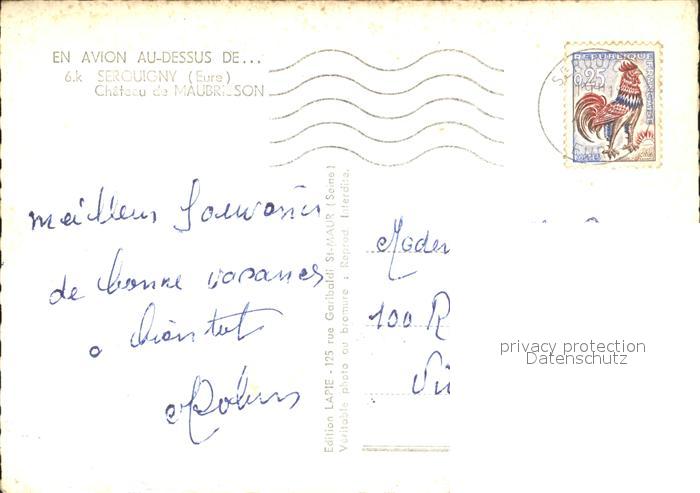 EN AVION AU-DESSUS DE...
6.k SERQUIGNY (Eure)
Château de MAUBRISSON
REPUBLIQUE
FRANÇAISE
0,25
meilleurs Souvenirs
de bonne vacances
a bientot
Edition LAPIE - 125 rue Garibaldi St-MAUR (Seine)
Véritable photo au bromure : Reprod. Interdite.
100 R
privacy protection
Datenschutz